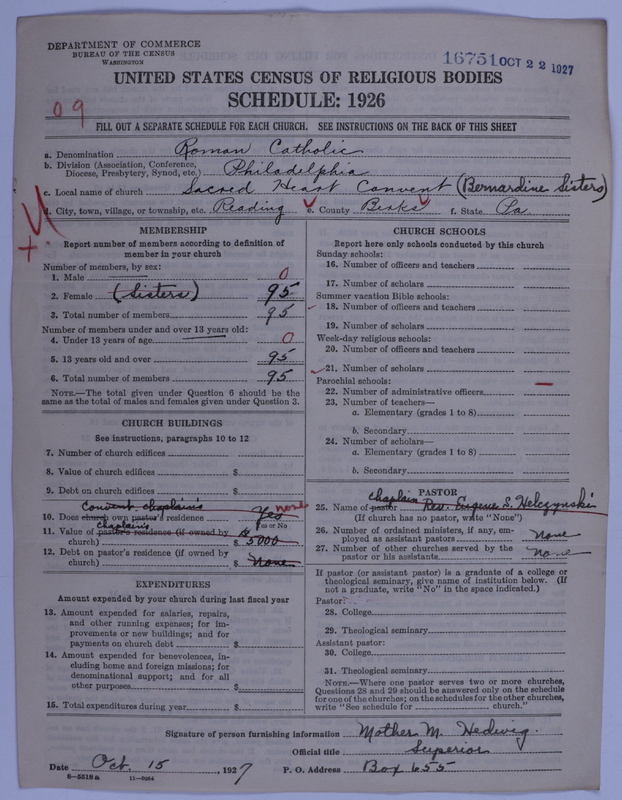 DEPARTMENT OF COMMERCE
BUREAU OF THE CENSUS
WASHINGTON
16751 OCT 22 1927
UNITED STATES CENSUS OF RELIGIOUS BODIES
SCHEDULE: 1926
09
FILL OUT A SEPARATE SCHEDULE FOR EACH CHURCH. SEE INSTRUCTIONS ON THE BACK OF THIS SHEET
a. Denomination Roman Catholic
b. Division (Association, Conference, Diocese, Presbytery, Synod, etc.) Philadelphia
c. Local name of church Sacred Heart Convent (Bernardine Sisters)
d. City, town, village, or township, etc. Reading e. County Berks f. State Pa
MEMBERSHIP
Report number of members according to definition of
member in your church
Number of members, by sex:
1. Male 0
2. Female (Sisters) 95
3. Total number of members 95
Number of members under and over 13 years old:
4. Under 13 years of age 0
5. 13 years old and over 95
6. Total number of members 95
NOTE.—The total given under Question 6 should be the
same as the total of males and females given under Question 3.
CHURCH BUILDINGS
See instructions, paragraphs 10 to 12
7. Number of church edifices
8. Value of church edifices $
9. Debt on church edifices $
Convent chaplain's none
10. Does church own pastor's residence Yes
Yes or No
chaplain's
11. Value of pastor's residence (if owned by
church) $ 5000
12. Debt on pastor's residence (if owned by
church) $ None
EXPENDITURES
Amount expended by your church during last fiscal year
13. Amount expended for salaries, repairs,
and other running expenses; for im-
provements or new buildings; and for
payments on church debt $
14. Amount expended for benevolences, in-
cluding home and foreign missions; for
denominational support; and for all
other purposes $
15. Total expenditures during year $
CHURCH SCHOOLS
Report here only schools conducted by this church
Sunday schools:
16. Number of officers and teachers
17. Number of scholars
Summer vacation Bible schools:
18. Number of officers and teachers
19. Number of scholars
Week-day religious schools:
20. Number of officers and teachers
21. Number of scholars
Parochial schools:
22. Number of administrative officers
23. Number of teachers—
a. Elementary (grades 1 to 8)
b. Secondary
24. Number of scholars—
a. Elementary (grades 1 to 8)
b. Secondary
PASTOR
chaplain
25. Name of pastor Rev. Eugene S.
(If church has no pastor, write "None")
26. Number of ordained ministers, if any, em-
ployed as assistant pastors None
27. Number of other churches served by the
pastor or his assistant None
If pastor (or assistant pastor) is a graduate of a college or
theological seminary, give name of institution below. (If
not a graduate, write "No" in the space indicated.)
Pastor:
28. College
29. Theological seminary
Assistant pastor:
30. College
31. Theological seminary
NOTE.—Where one pastor serves two or more churches,
Questions 28 and 29 should be answered only on the schedule
for one of the churches; on the schedules for the other churches,
write "See schedule for church."
Signature of person furnishing information Mother M. Hedwig.
Official title Superior
Date Oct. 15, 1927 P. O. Address Box 655
11-9064